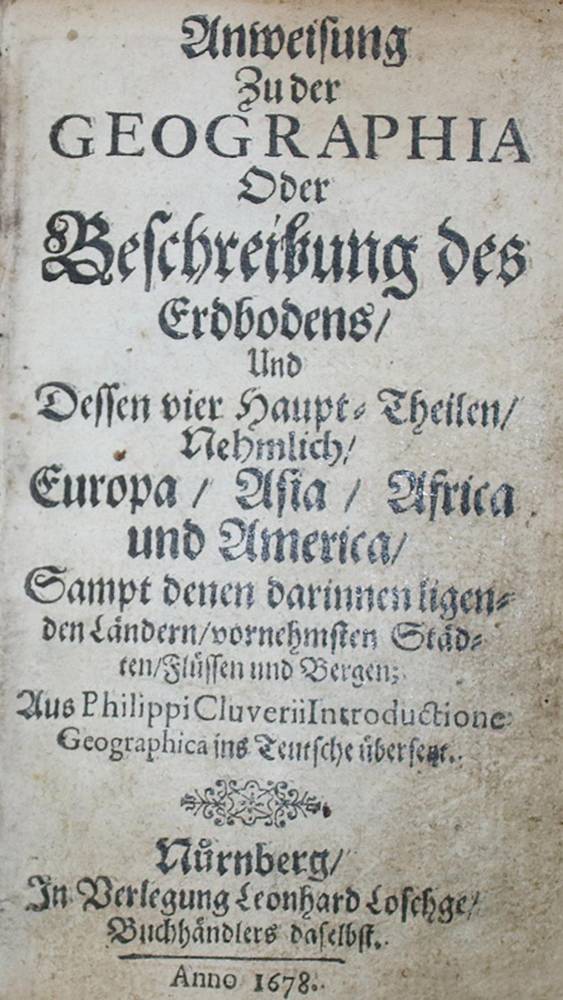 Anweiſung
Zu der
GEOGRAPHIA
Oder
Beſchreibung des
Erdbodens/
Und
Deſſen vier Haupt⸗ Theilen/
Nehmlich/
Europa / Aſia / Africa
und America/
Sampt denen darinnen ligen⸗
den Ländern/vornehmſten Städ⸗
ten/Flüſſen und Bergen;
Aus Philippi Cluverii Introductione
Geographica ins Teutſche überſetzt.
Nürnberg/
In Verlegung Leonhard Loſchge/
Buchhändlers daſelbſt.
Anno 1678.